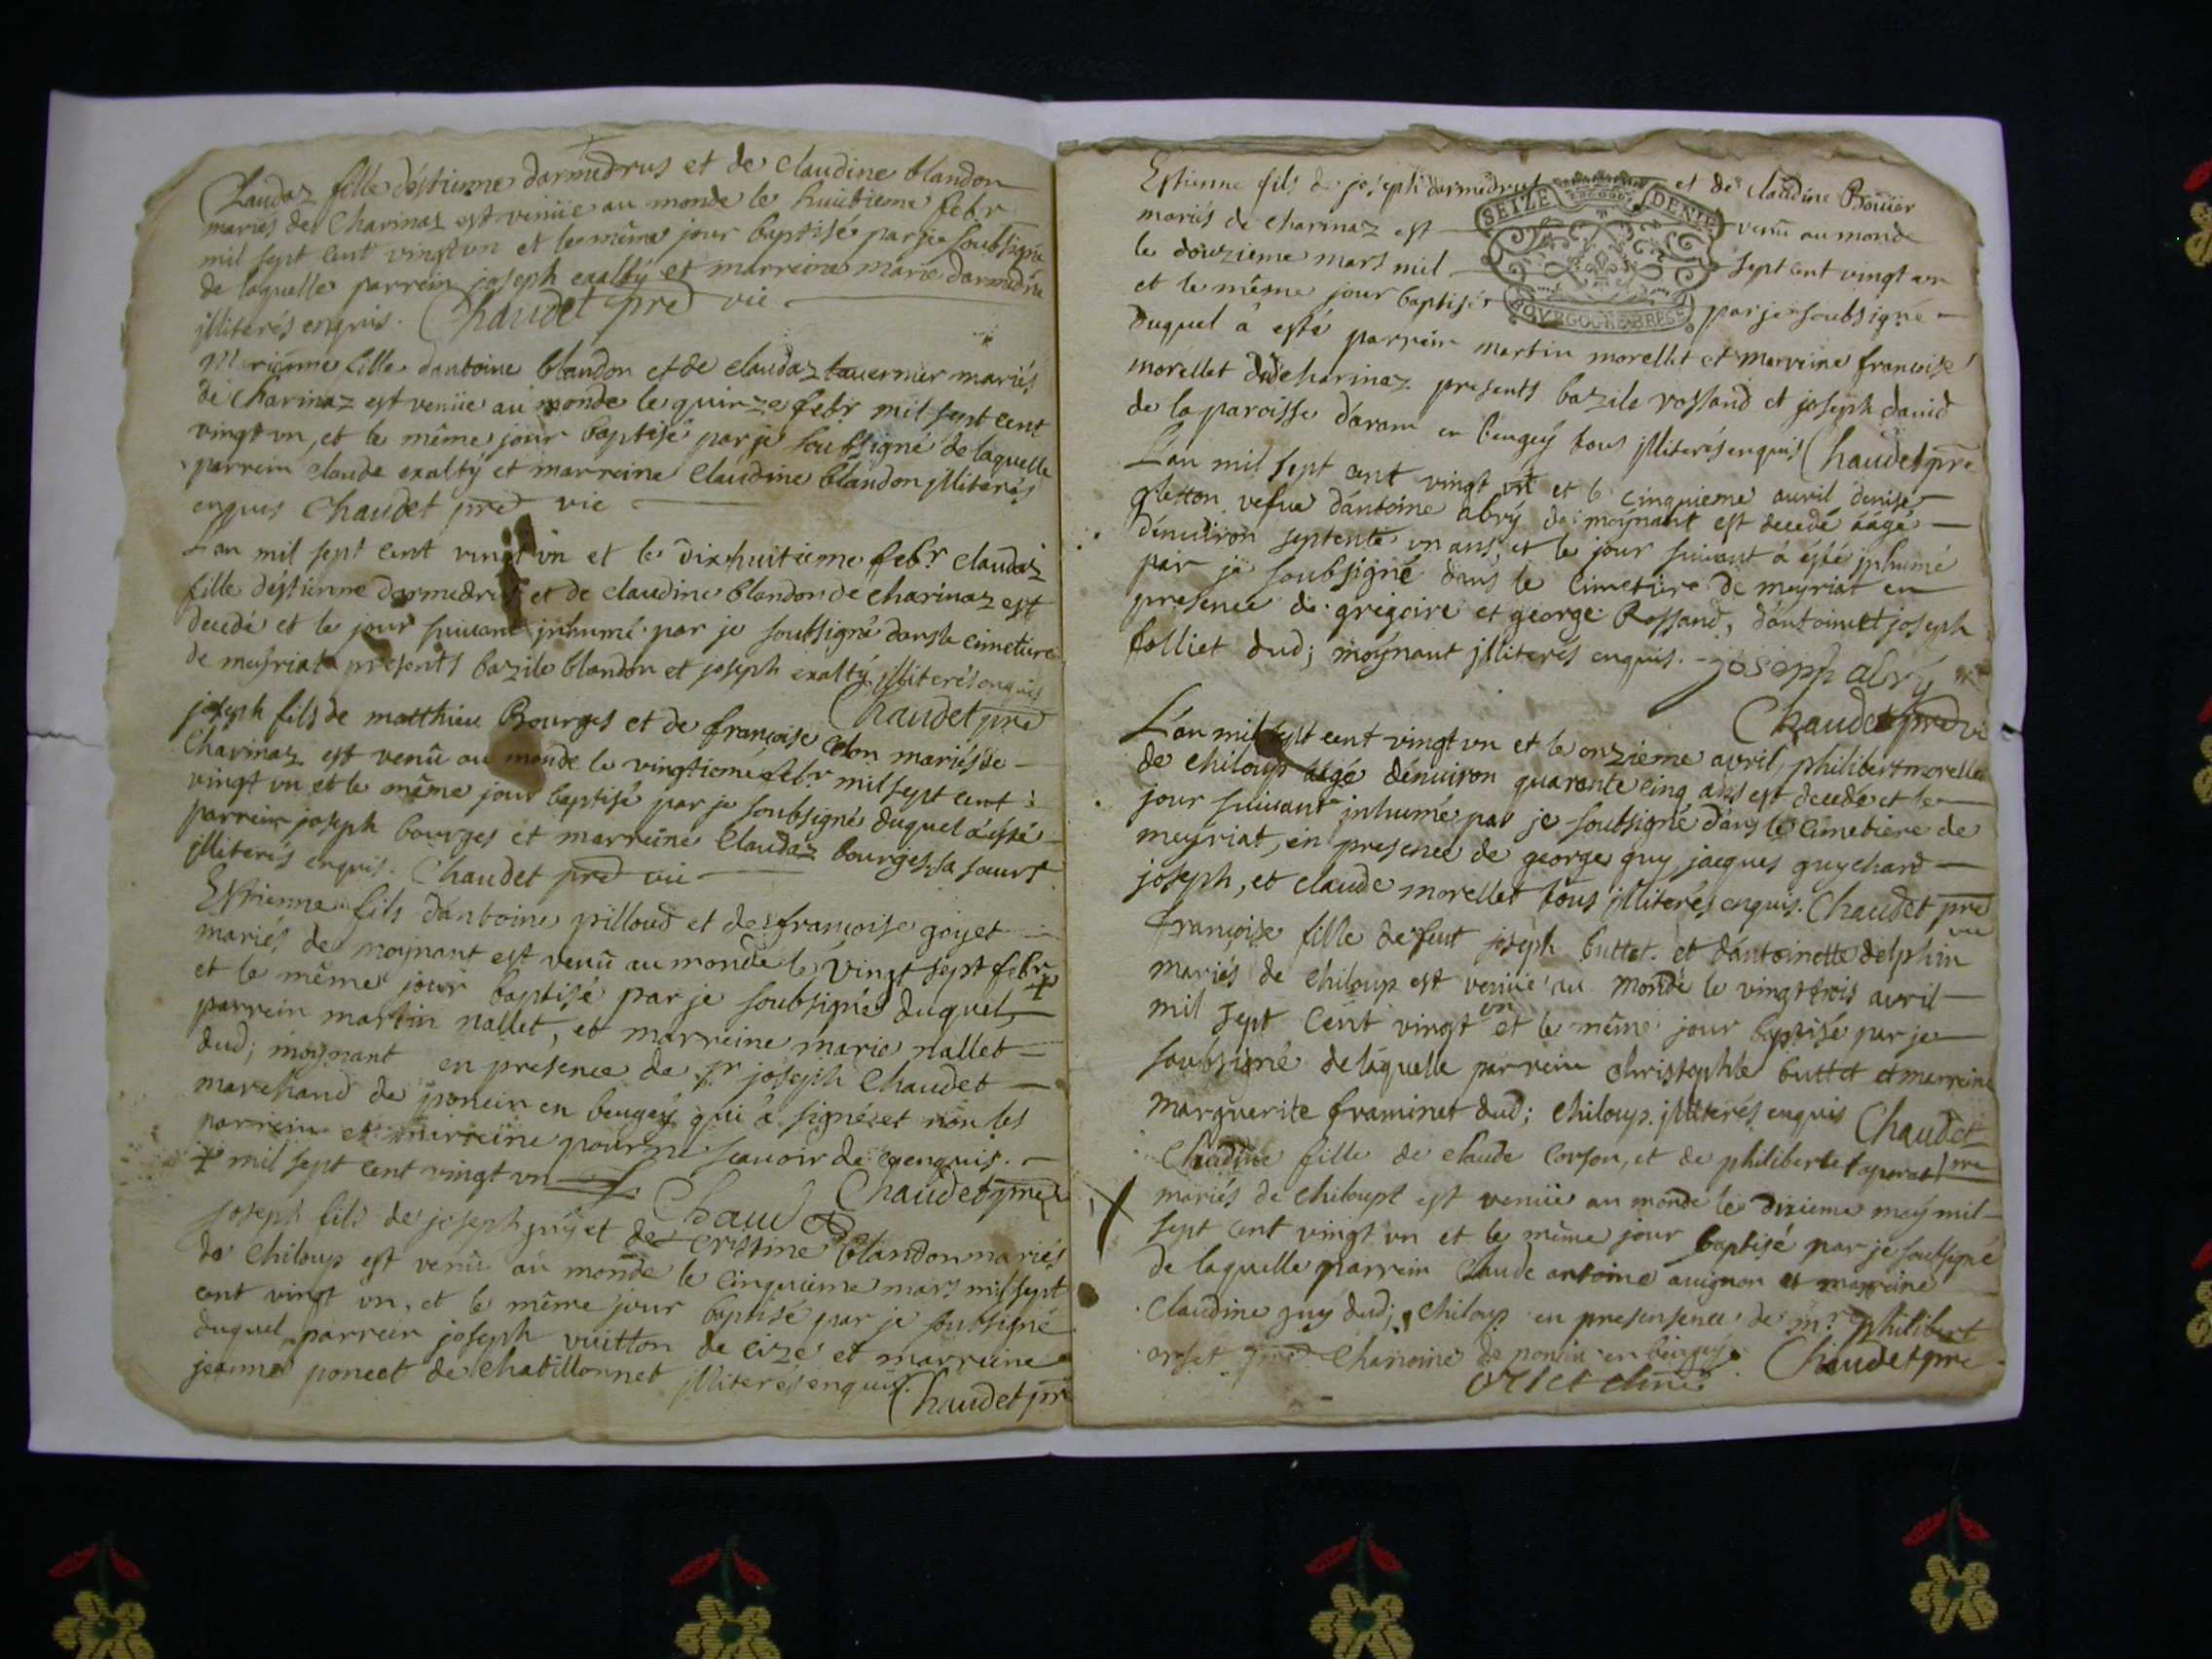 Claudaz fille d'éstienne darmedrus et de claudine blandon
mariés de Charinaz est venüe au monde le huictieme febr
mil sept cent vingt un et le même jour baptisé par je soubsigné
de laquelle parrein joseph exaltÿ et marreine marie darmedru
jlliterés enquis. Chaudet pre vic
Marianne fille dantoine blandon et de claudaz tavernier mariés
de Charinaz est venüe au monde le quinze febr mil sept cent
vingt un, et le même jour baptisé par je soubsigné de laquelle
parrein claude exaltÿ et marreine Claudine blandon jlliterés
enquis Chaudet pre vic
L'an mil sept cent vingt un et le dixhuitieme febr. claudaz
fille d'éstienne darmedrus et de claudine blandon de charinaz est
decedé et le jour suivant jnhumé par je soubsigné dans le cimetiere
de meÿriat presents bazile blandon et joseph exaltÿ jlliterés enquis
Chaudet pre
joseph fils de matthieu Bourges et de françoise mariés de
Charinaz est venû au monde le vingtieme febr mil sept cent
vingt un et le même jour baptisé par je soubsigné duquel a esté
parrein joseph bourges et marreine Claudaz bourges sa soeur
jlliterés enquis. Chaudet pre vic
Estienne fils d'antoine pilloud et de francoise goÿet
mariés de moÿnant est venû au monde le vingt sept febr +
et le même jour baptisé par je soubsigné duquel
parrein martin nallet, et marreine marie nallet
dud; moÿnant en presence de sr joseph Chaudet
marchand de poncin en beugeÿ qui à signé et non les
parrein et marreine pour ne scavoir de ce enquis.
+ mil sept cent vingt un
Chaudet Chaudet pre
joseph fils de joseph guÿ et de cristine blandon mariés
de Chiloup est venû au monde le cinquieme mars mil sept
cent vingt un, et le même jour baptisé par je soubsigné
duquel parrein joseph vuitton de cize et marreine
jeanne poncet de Chatillonnet jlliterés enquis.
Chaudet pre
Estienne fils de joseph darmedrut et de Claudine Bouüer
mariés de charinaz est venû au monde
SEIZE DENIE
le douzieme mars mil sept cent vingt un
et le même jour baptisé par je soubsigné
BOVRGOGNE BRESSE
duquel à esté parrein martin morellet et marreine francoise
morellet dud charinaz presents bazile rossand et joseph david
de la paroisse d'aram en beugeÿ tous jlliterés enquis Chaudet pre
L'an mil sept cent vingt un et le cinquieme avril denise
gletton vefue d'antoine abrÿ de moÿnant est decedé aagé
d'enuiron septente un ans, et le jour suivant à ésté jnhumé
par je soubsigné dans le cimetiere de meyriat en
presence de gregoire et george Rossand, d'antoine et joseph
folliet dud; moÿnant jlliterés enquis. joseph abrÿ
Chaudet pre vi
L'an mil sept cent vingt un et le onzieme avril, philibert morellet
de chiloup aagé d'enuiron quarante cinq ans est decedé et le
jour suivant jnhumé par je soubsigné dans le cimetiere de
meyriat, en presence de george guy jacques guychard
joseph, et claude morellet tous jlliterés enquis. Chaudet pre
vic
Françoise fille de feut joseph buttet et d'antoinette delphin
mariés de chiloup est venüe au monde le vingt trois avril
mil sept cent vingt un et le même jour baptisé par je
soubsigné de laquelle parrein christophle buttet et marreine
marguerite framinet dud; chiloup. jlliterés enquis Chaudet
pre
Claudine fille de claude Corson, et de philiberte
mariés de chiloupt est venüe au monde le dixieme maÿ mil
sept cent vingt un et le même jour baptisé par je soubsigné
de laquelle parrein Claude antoine avignon et marreine
claudine guy dud; chiloup en presensence de mr. philibert
orset pre Chanoine de poncin en beugeÿ. Chaudet pre
orset chne